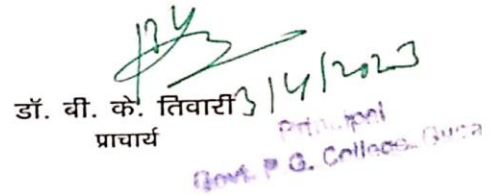 डॉ. वी. के. तिवारी 3/4/2023
प्राचार्य
Principal
Govt. P. G. College, Guna